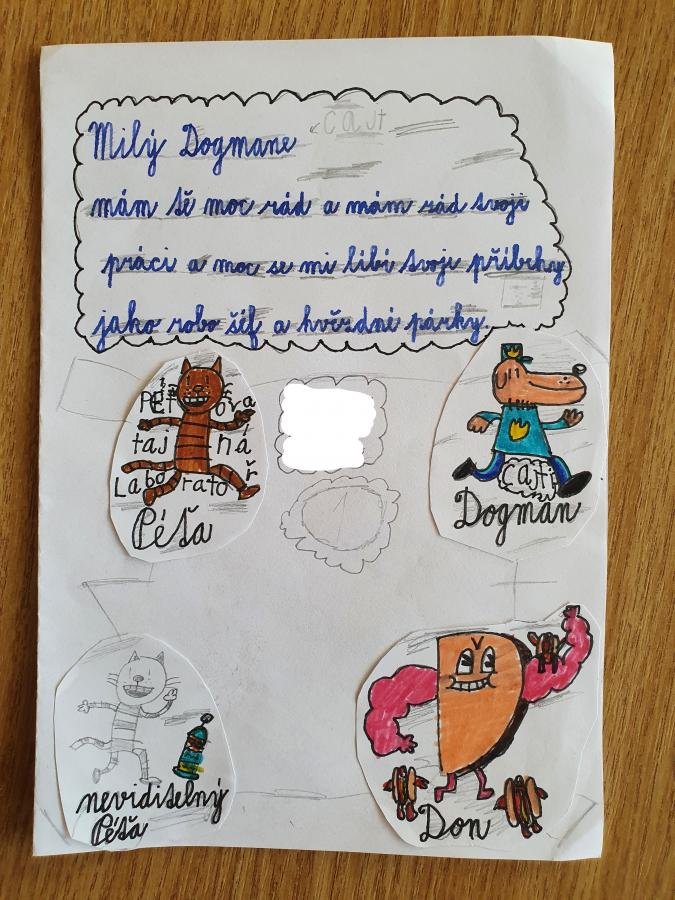 cajt
Milý Dogmane
mám tě moc rád a mám rád tvoji
práci a moc se mi líbí tvoje příběhy
jako robo šéf a hvězdné párky.
taj ná
Labo rato ř
Péťa
cajti
Dogman
neviditelný
Péťa
Don